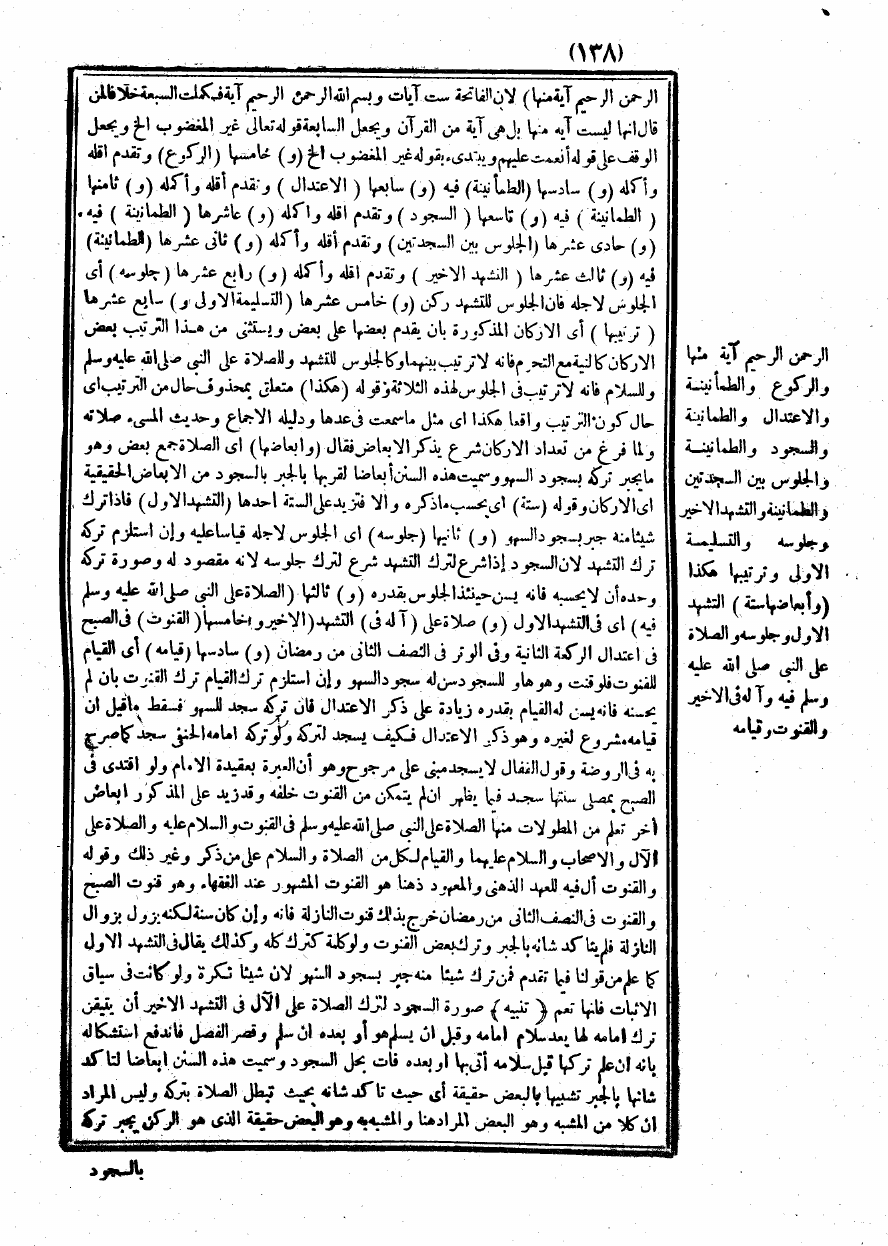 (١٣٨)
الرحمن الرحيم آية منها) لان الفاتحة ست آيات وبسم الله الرحمن الرحيم آية فكملت السبعة خلافا لمن
قال انها ليست آيه منها بل هى آية من القرآن ويجعل السابعة قوله تعالى غير المغضوب الخ ويجعل
الوقف على قوله أنعمت عليهم ويبتدىء بقوله غير المغضوب الخ (و) خامسها (الركوع) وتقدم اقله
وأكمله (و) سادسها (الطمأنينة) فيه (و) سابعها ( الاعتدال ) وتقدم أقله وأكمله (و) ثامنها
( الطمانينة ) فيه (و) تاسعها ( السجود ) وتقدم اقله واكمله (و) عاشرها ( الطمانينة ) فيه
(و) حادى عشرها (الجلوس بين السجدتين) وتقدم أقله وأكمله (و) ثانى عشرها (الطمانينة)
فيه (و) ثالث عشرها ( التشهد الاخير ) وتقدم اقله وأكمله (و) رابع عشرها (جلوسه) أى
الجلوس لاجله فان الجلوس للتشهد ركن (و) خامس عشرها (التسليمة الاولى و) سابع عشرها
( ترتيبها ) أى الاركان المذكورة بان يقدم بعضها على بعض ويستثنى من هذا الترتيب بعض
الاركان كالنية مع التحرم فانه لا ترتيب بينهما وكالجلوس للتشهد وللصلاة على النبى صلى الله عليه وسلم
وللسلام فانه لا ترتيب فى الجلوس لهذه الثلاثة وقوله (هكذا) متعلق بمحذوف حال من الترتيب اى
حال كون الترتيب واقعا هكذا اى مثل ما سمعت فى عدها ودليله الاجماع وحديث المسىء صلاته
ولما فرغ من تعداد الاركان شرع يذكر الابعاض فقال (وابعاضها) اى الصلاة جمع بعض وهو
ما يجبر تركه بسجود السهو وسميت هذه السنن أبعاضا لقربها بالجبر بالسجود من الابعاض الحقيقية
اى الاركان وقوله (ستة) اى بحسب ما ذكره والا فتزيد على الستة احدها (التشهد الاول) فاذا ترك
شيئا منه جبر بسجود السهو (و) ثانيها (جلوسه) اى الجلوس لاجله قياسا عليه وإن استلزم تركه
ترك التشهد لان السجود إذا شرع لترك التشهد شرع لترك جلوسه لانه مقصود له وصورة تركه
وحده أن لا يحسنه فانه يسن حينئذ الجلوس بقدره (و) ثالثها (الصلاة على النبى صلى الله عليه وسلم
فيه) اى فى التشهد الاول (و) صلاة على (آله فى) التشهد (الاخير و) خامسها (القنوت) فى الصبح
فى اعتدال الركعة الثانية وفى الوتر فى النصف الثانى من رمضان (و) سادسها (قيامه) أى القيام
للقنوت فلو قنت وهو هاو للسجود سن له سجود السهو وإن استلزم ترك القيام ترك القنوت بان لم
يحسنه فانه يسن له القيام بقدره زيادة على ذكر الاعتدال فان تركه سجد للسهو فسقط ما قيل ان
قيامه مشروع لغيره وهو ذكر الاعتدال فكيف يسجد لتركه ولو تركه امامه الحنفى سجد كما صرح
به فى الروضة وقول القفال لا يسجد مبنى على مرجوح وهو أن العبرة بعقيدة الامام ولو اقتدى فى
الصبح بمصلى سنتها سجد فيما يظهر ان لم يتمكن من القنوت خلفه وقد زيد على المذكور ابعاض
أخر تعلم من المطولات منها الصلاة على النبى صلى الله عليه وسلم فى القنوت والسلام عليه والصلاة على
الآل والاصحاب والسلام عليهما والقيام لكل من الصلاة والسلام على من ذكر وغير ذلك وقوله
والقنوت أل فيه للعهد الذهنى والمعهود ذهنا هو القنوت المشهور عند الفقهاء وهو قنوت الصبح
والقنوت فى النصف الثانى من رمضان خرج بذلك قنوت النازلة فانه وإن كان سنة لكنه يزول بزوال
النازلة فلم يتأكد شانه بالجبر وترك بعض القنوت ولو كلمة كترك كله وكذلك يقال فى التشهد الاول
كما علم من قولنا فيما تقدم فمن ترك شيئا منه جبر بسجود السهو لان شيئا نكرة ولو كانت فى سياق
الاثبات فانها تعم ( تنبيه ) صورة السجود لترك الصلاة على الآل فى التشهد الاخير أن يتيقن
ترك امامه لها بعد سلام امامه وقبل ان يسلم هو أو بعده ان سلم وقصر الفصل فاندفع استشكاله
بانه ان علم تركها قبل سلامه أتى بها او بعده فات بحل السجود وسميت هذه السنن ابعاضا لتاكد
شانها بالجبر تشبيها بالبعض حقيقة أى حيث تاكد شانه بحيث تبطل الصلاة بتركه وليس المراد
أن كلا من المشبه وهو البعض المراد هنا والمشبه به وهو البعض حقيقة الذى هو الركن يجبر تركه
بالسجود
الرحمن الرحيم آية منها
والركوع والطمأنينة
والاعتدال والطمانينة
والسجود والطمانينة
والجلوس بين السجدتين
والطمانينة والتشهد الاخير
وجلوسه والتسليمة
الاولى وترتيبها هكذا
(وأبعاضها ستة) التشهد
الاول وجلوسه والصلاة
على النبى صلى الله عليه
وسلم فيه وآله فى الاخير
والقنوت وقيامه